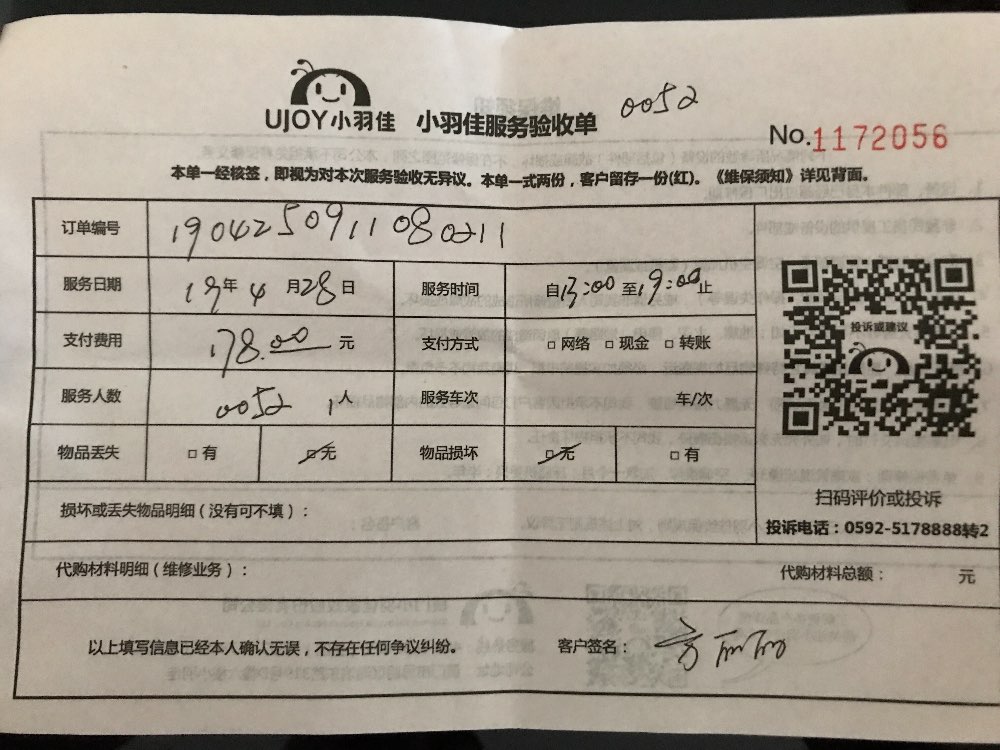 UJOY小羽佳 小羽佳服务验收单 0052
No.1172056
本单一经核签，即视为对本次服务验收无异议。本单一式两份，客户留存一份(红)。《维保须知》详见背面。
订单编号 1904250911080211
服务日期 19年4月28日 服务时间 自13:00至19:00止
支付费用 178.00元 支付方式 □ 网络 □ 现金 □ 转账
服务人数 0052 1人 服务车次 车/次
物品丢失 □ 有 □ 无 物品损坏 □ 无 □ 有
投诉或建议
扫码评价或投诉
投诉电话：0592-5178888转2
损坏或丢失物品明细（没有可不填）：
代购材料明细（维修业务）： 代购材料总额： 元
以上填写信息已经本人确认无误，不存在任何争议纠纷。 客户签名：